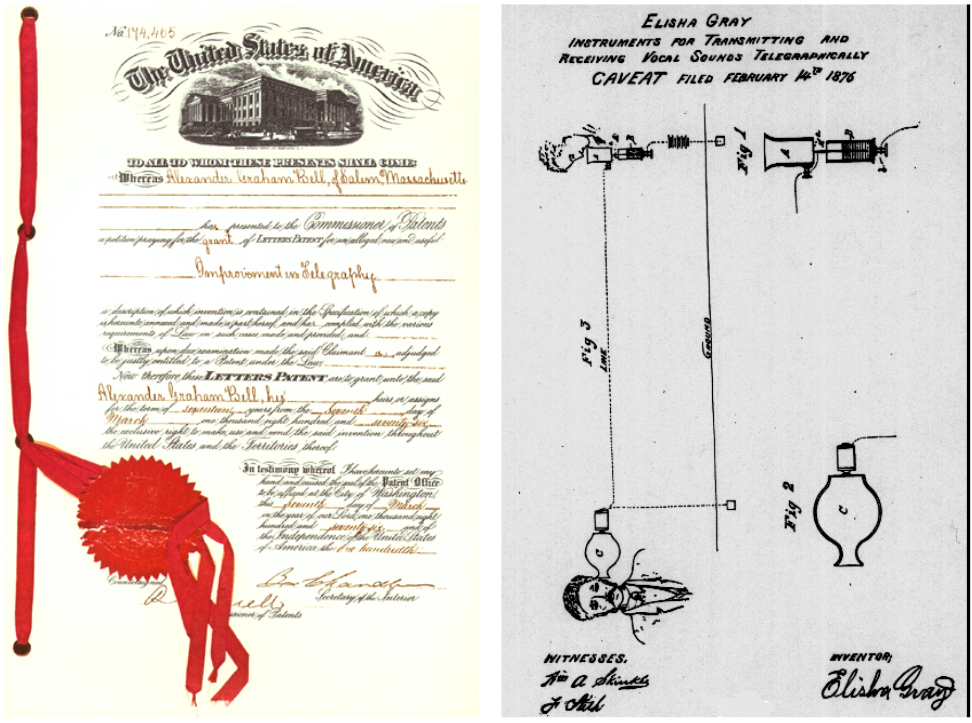 No. 174,465
The United States of America
TO ALL TO WHOM THESE PRESENTS SHALL COME:
Whereas Alexander Graham Bell, of Salem, Massachusetts
has presented to the Commissioner of Patents
a petition praying for the grant of LETTERS PATENT for an alleged new and useful
Improvement in Telegraphy
a description of which invention is contained in the Specification of which a copy
is hereunto annexed and made a part hereof, and has complied with the various
requirements of Law in such cases made and provided, and
Whereas upon due examination made the said Claimant is adjudged
to be justly entitled to a Patent under the Law.
Now therefore these LETTERS PATENT are to grant unto the said
Alexander Graham Bell, his heirs or assigns
for the term of seventeen years from the seventh day of
March one thousand eight hundred and seventy-six
the exclusive right to make, use and vend the said invention throughout
the United States and the Territories thereof.
In testimony whereof I have hereunto set my
hand and caused the seal of the Patent Office
to be affixed at the City of Washington
this seventh day of March
in the year of our Lord one thousand eight
hundred and seventy-six and of
the Independence of the United States
of America the one hundredth.
Countersigned
Secretary of the Interior
ssioner of Patents
ELISHA GRAY
INSTRUMENTS FOR TRANSMITTING AND
RECEIVING VOCAL SOUNDS TELEGRAPHICALLY
CAVEAT FILED FEBRUARY 14TH 1876
Fig 1
A
A
B
Fig 3
LINE
GROUND
Fig 2
C
C
WITNESSES.
Wm A. Skinkle
INVENTOR;
Elisha Gray